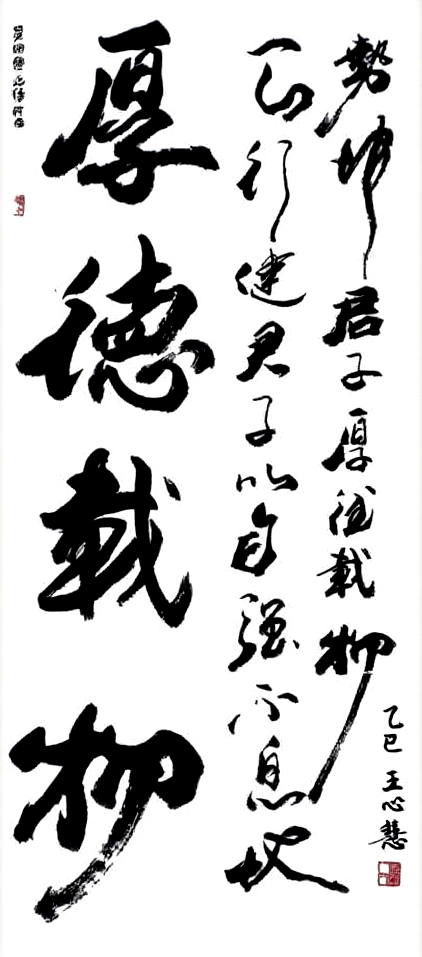 厚德載物
天行健君子以自强不息地
勢坤君子厚德載物
乙巳 王心慧